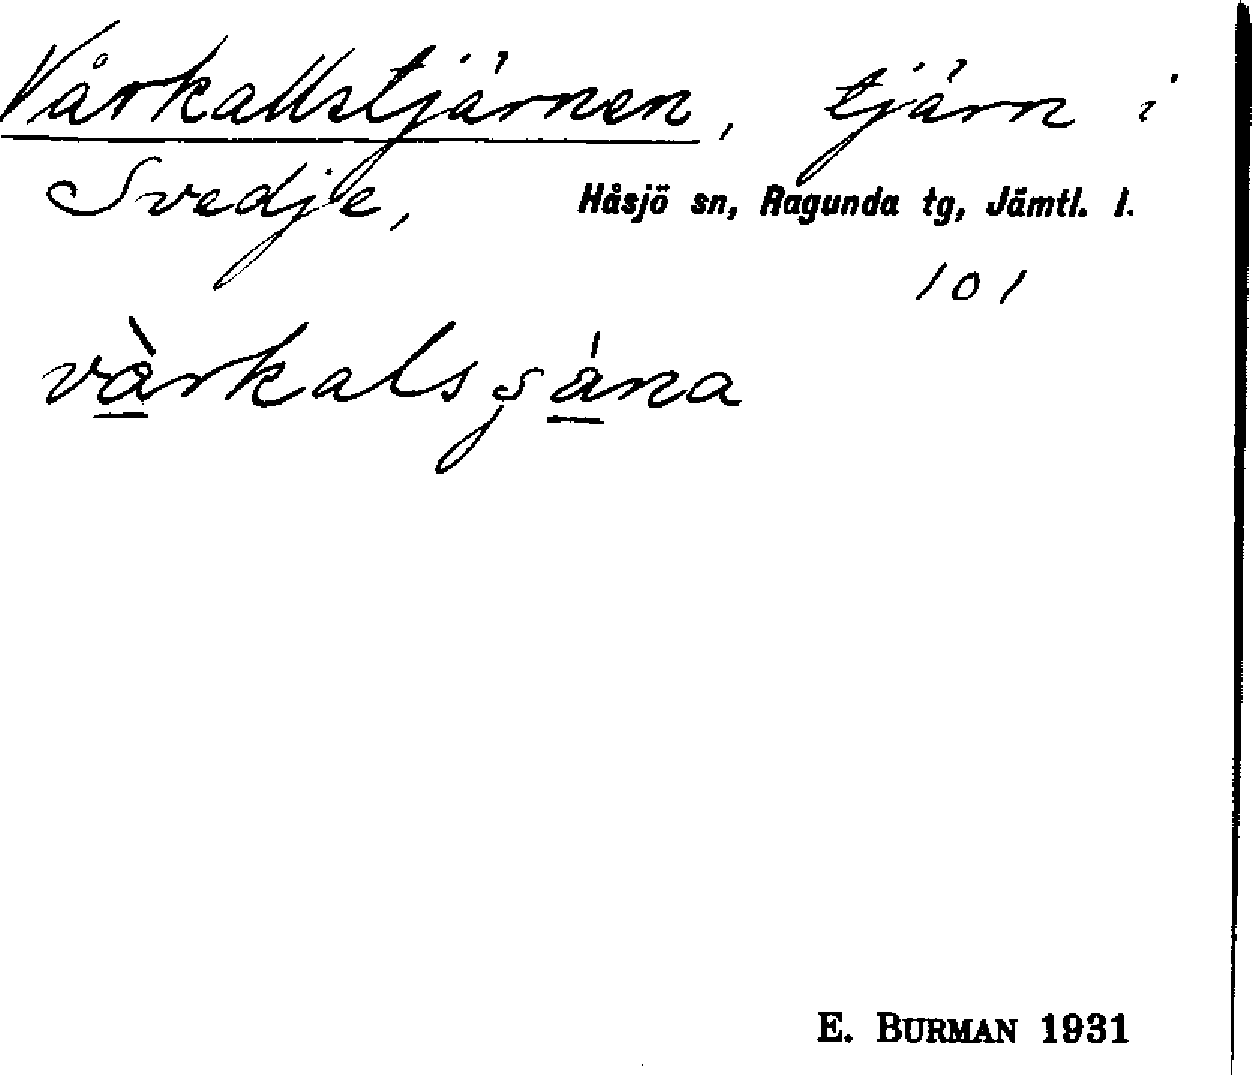 Vårkallstjärnen, tjärn i
Svedje, Håsjö sn, Ragunda tg, Jämtl. l.
101
vårkalsʂána
E. BURMAN 1931